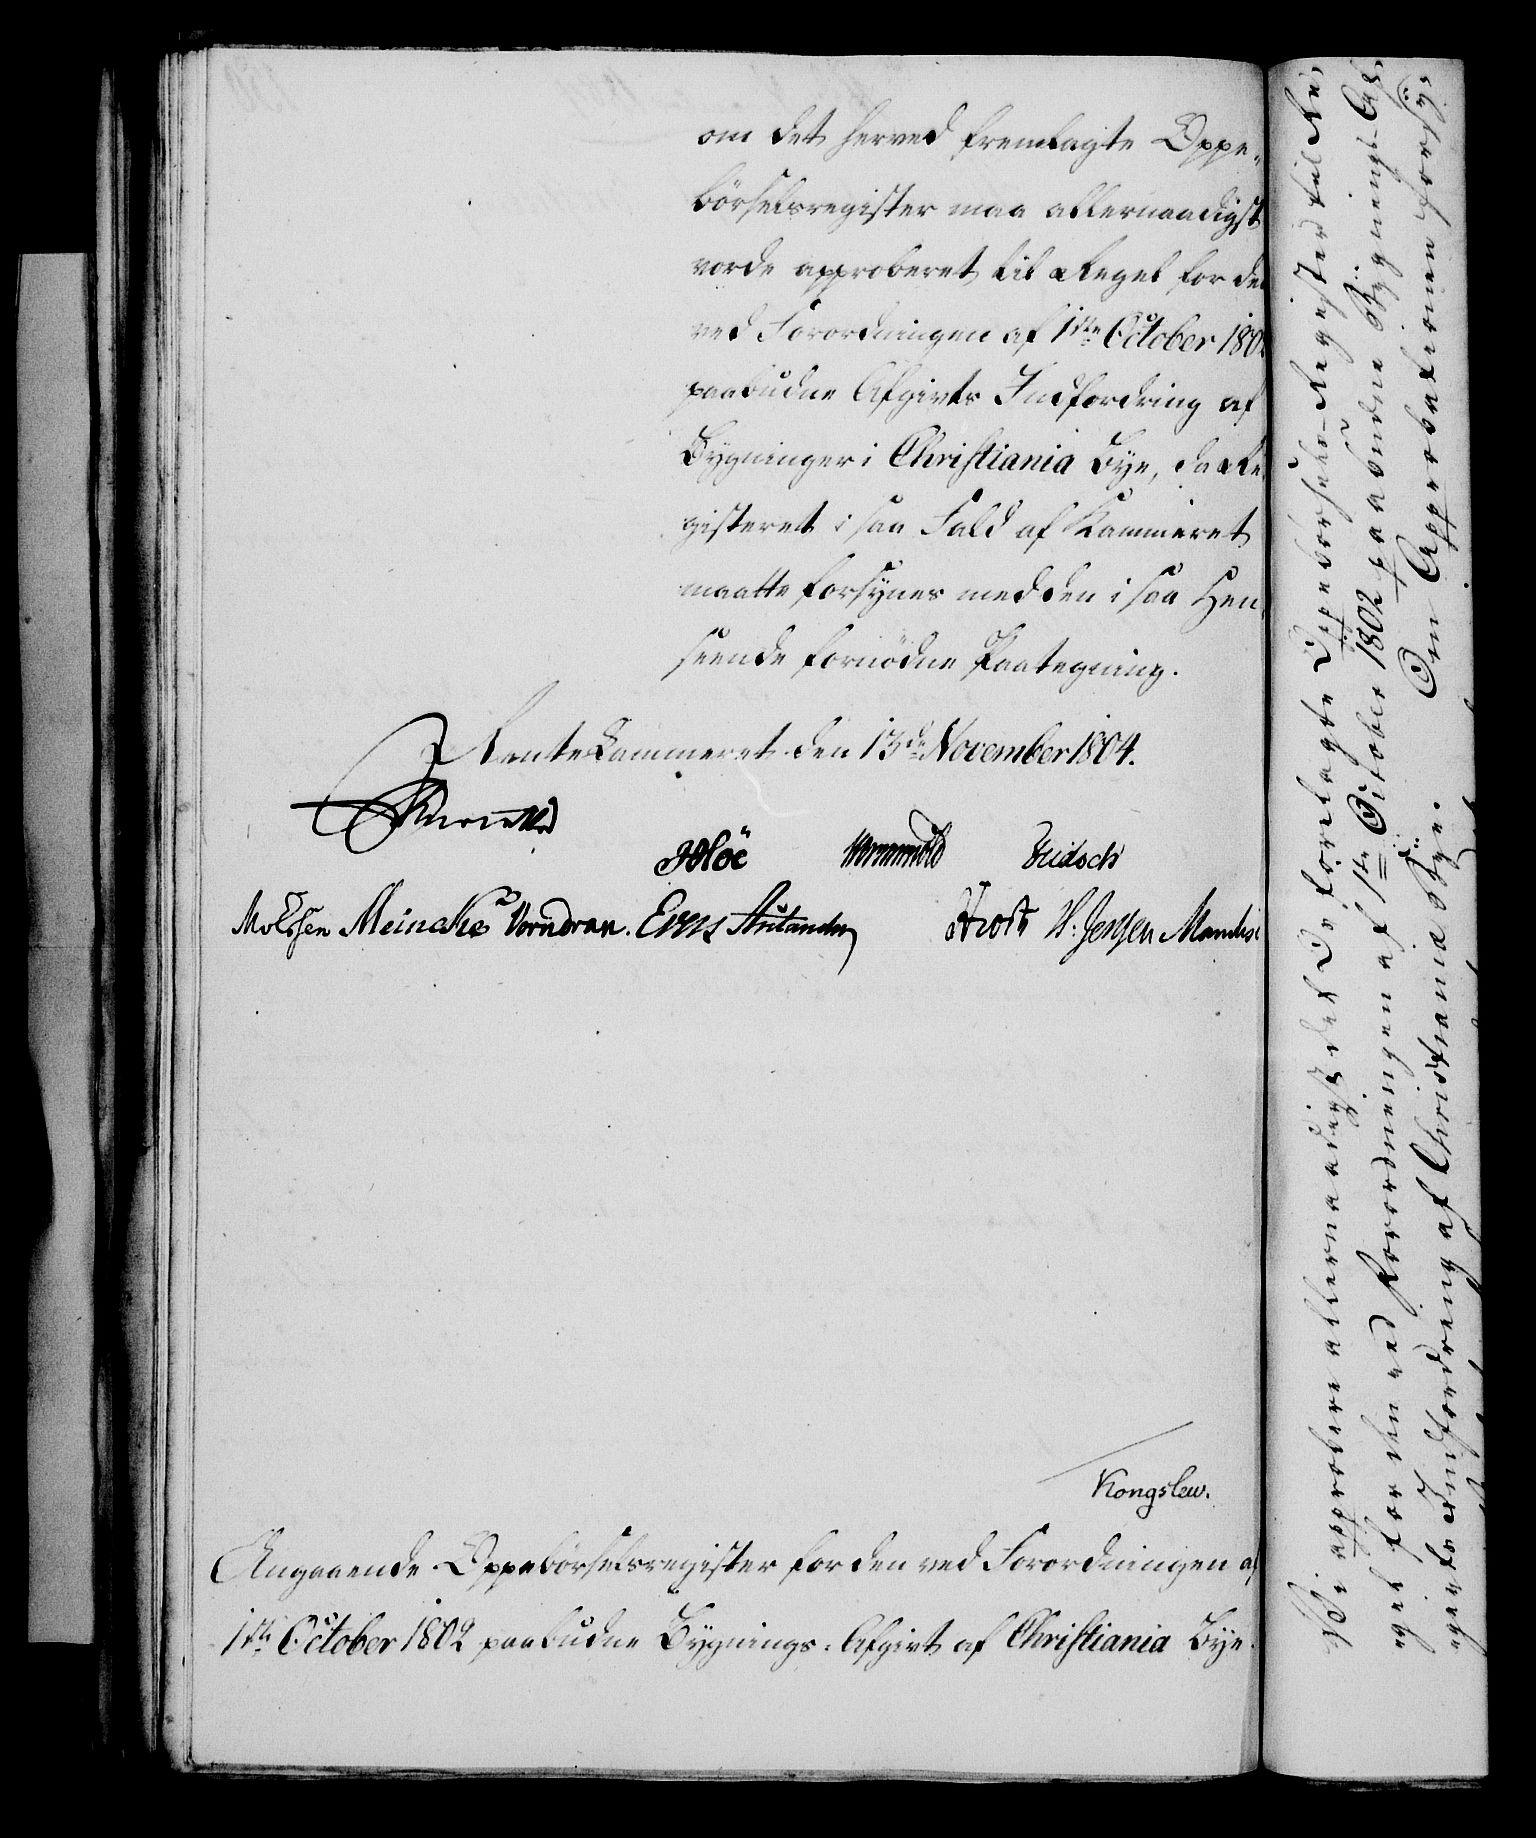 om det herved fremlagte Oppe-
börselsregister maa allernaadigst
vorde approberet til Regel for den
ved Forordningen af 1ste October 1802
paabudne Afgivts Indfordring af
Bygninger i Christiania Bye, da Re-
gisteret i saa Fald af Kammeret
maatte forsynes med den i saa Hen-
seende fornödne Paategning.
RenteKammeret den 13de November 1804.
Meincke Vorndran.
H. Jessen
Kongslew.
Angaaende Oppebörselsregister for den ved Forordningen af
1ste October 1802 paabudne Bygnings-Afgivt af Christiania Bye.
Vi approbere allernaadigst det Os forelagte Oppebörsels-Register til Re-
gel for den ved Forordningen af 1ste October 1802 paabudne Bygnings-Af-
givts Indfordring af Christiania Bye. Om Approbationen forsy-